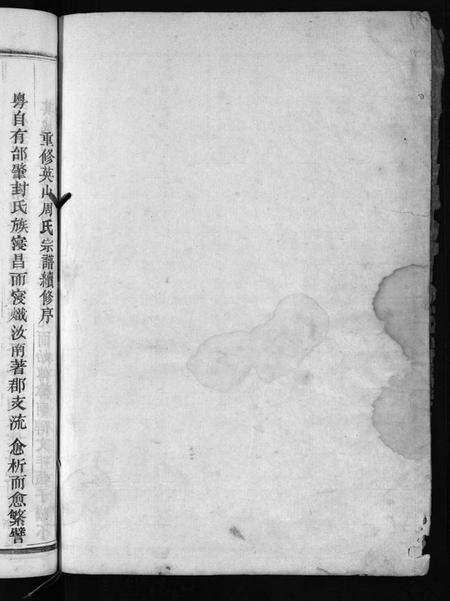 重修英山周氏宗譜續修序
粤自有邰肇封氏族寖昌而寖熾汝南著郡支流愈析而愈繁譬